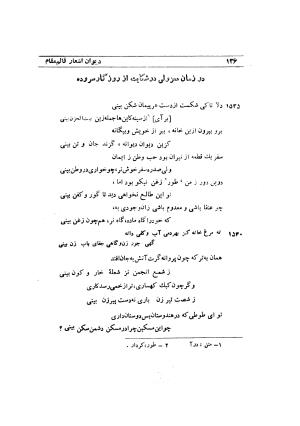 ۱۳۶
دیوان اشعار قائم‌مقام
در زمان معزولی در شکایت از روزگار سروده
۱۵۳۵ دلا تا کی شکست از دست هر پیمان شکن بینی
(برآی) از سینه کاین‌ها جمله زین بیت‌الحزن بینی
برو بیرون از این خانه ، ببر از خویش و بیگانه
کزین دیوان دیوانه ، گزند جان و تن بینی
سفر یك قطعه از نیران بود حب وطن ز ایمان
ولی صدره سفر خوش‌تر، چو خواری در وطن بینی
دو بین روز من ، طور۲ زغن نیکو بود اما ،
تو این طالع نخواهی دید تا گور و کفن بینی
چو عنقا باشی و معدوم باشی راد وجودی به ،
که خود را گاه ماده گاه نر ، همچون زغن بینی
۱۵۴۰ نه مرغ خانه کز بهر دمی آب و کفی دانه
گهی جود زن و گاهی جفای باب زن بینی
همان به‌تر که چون پروانه گرت آتش به جان افتد
ز شمع انجمن نز شعلهٔ خار و کون بینی
وگر چون کبك کهساری، ترا زخمی رسد کاری
ز شصت لیر زن باری نه دست پیر زن بینی
تو ای طوطی که در هندوستان بس دوستان داری
چو این مسکین چرا در مسکن دشمن سکن بینی ؟
۱- متن : در
۲ - طور : کردار .